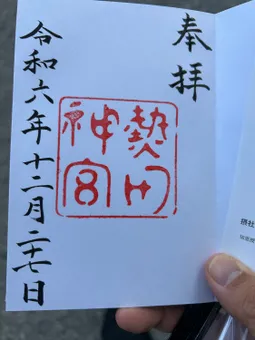 奉拝
熱田
神宮
令和六年十二月二十七日